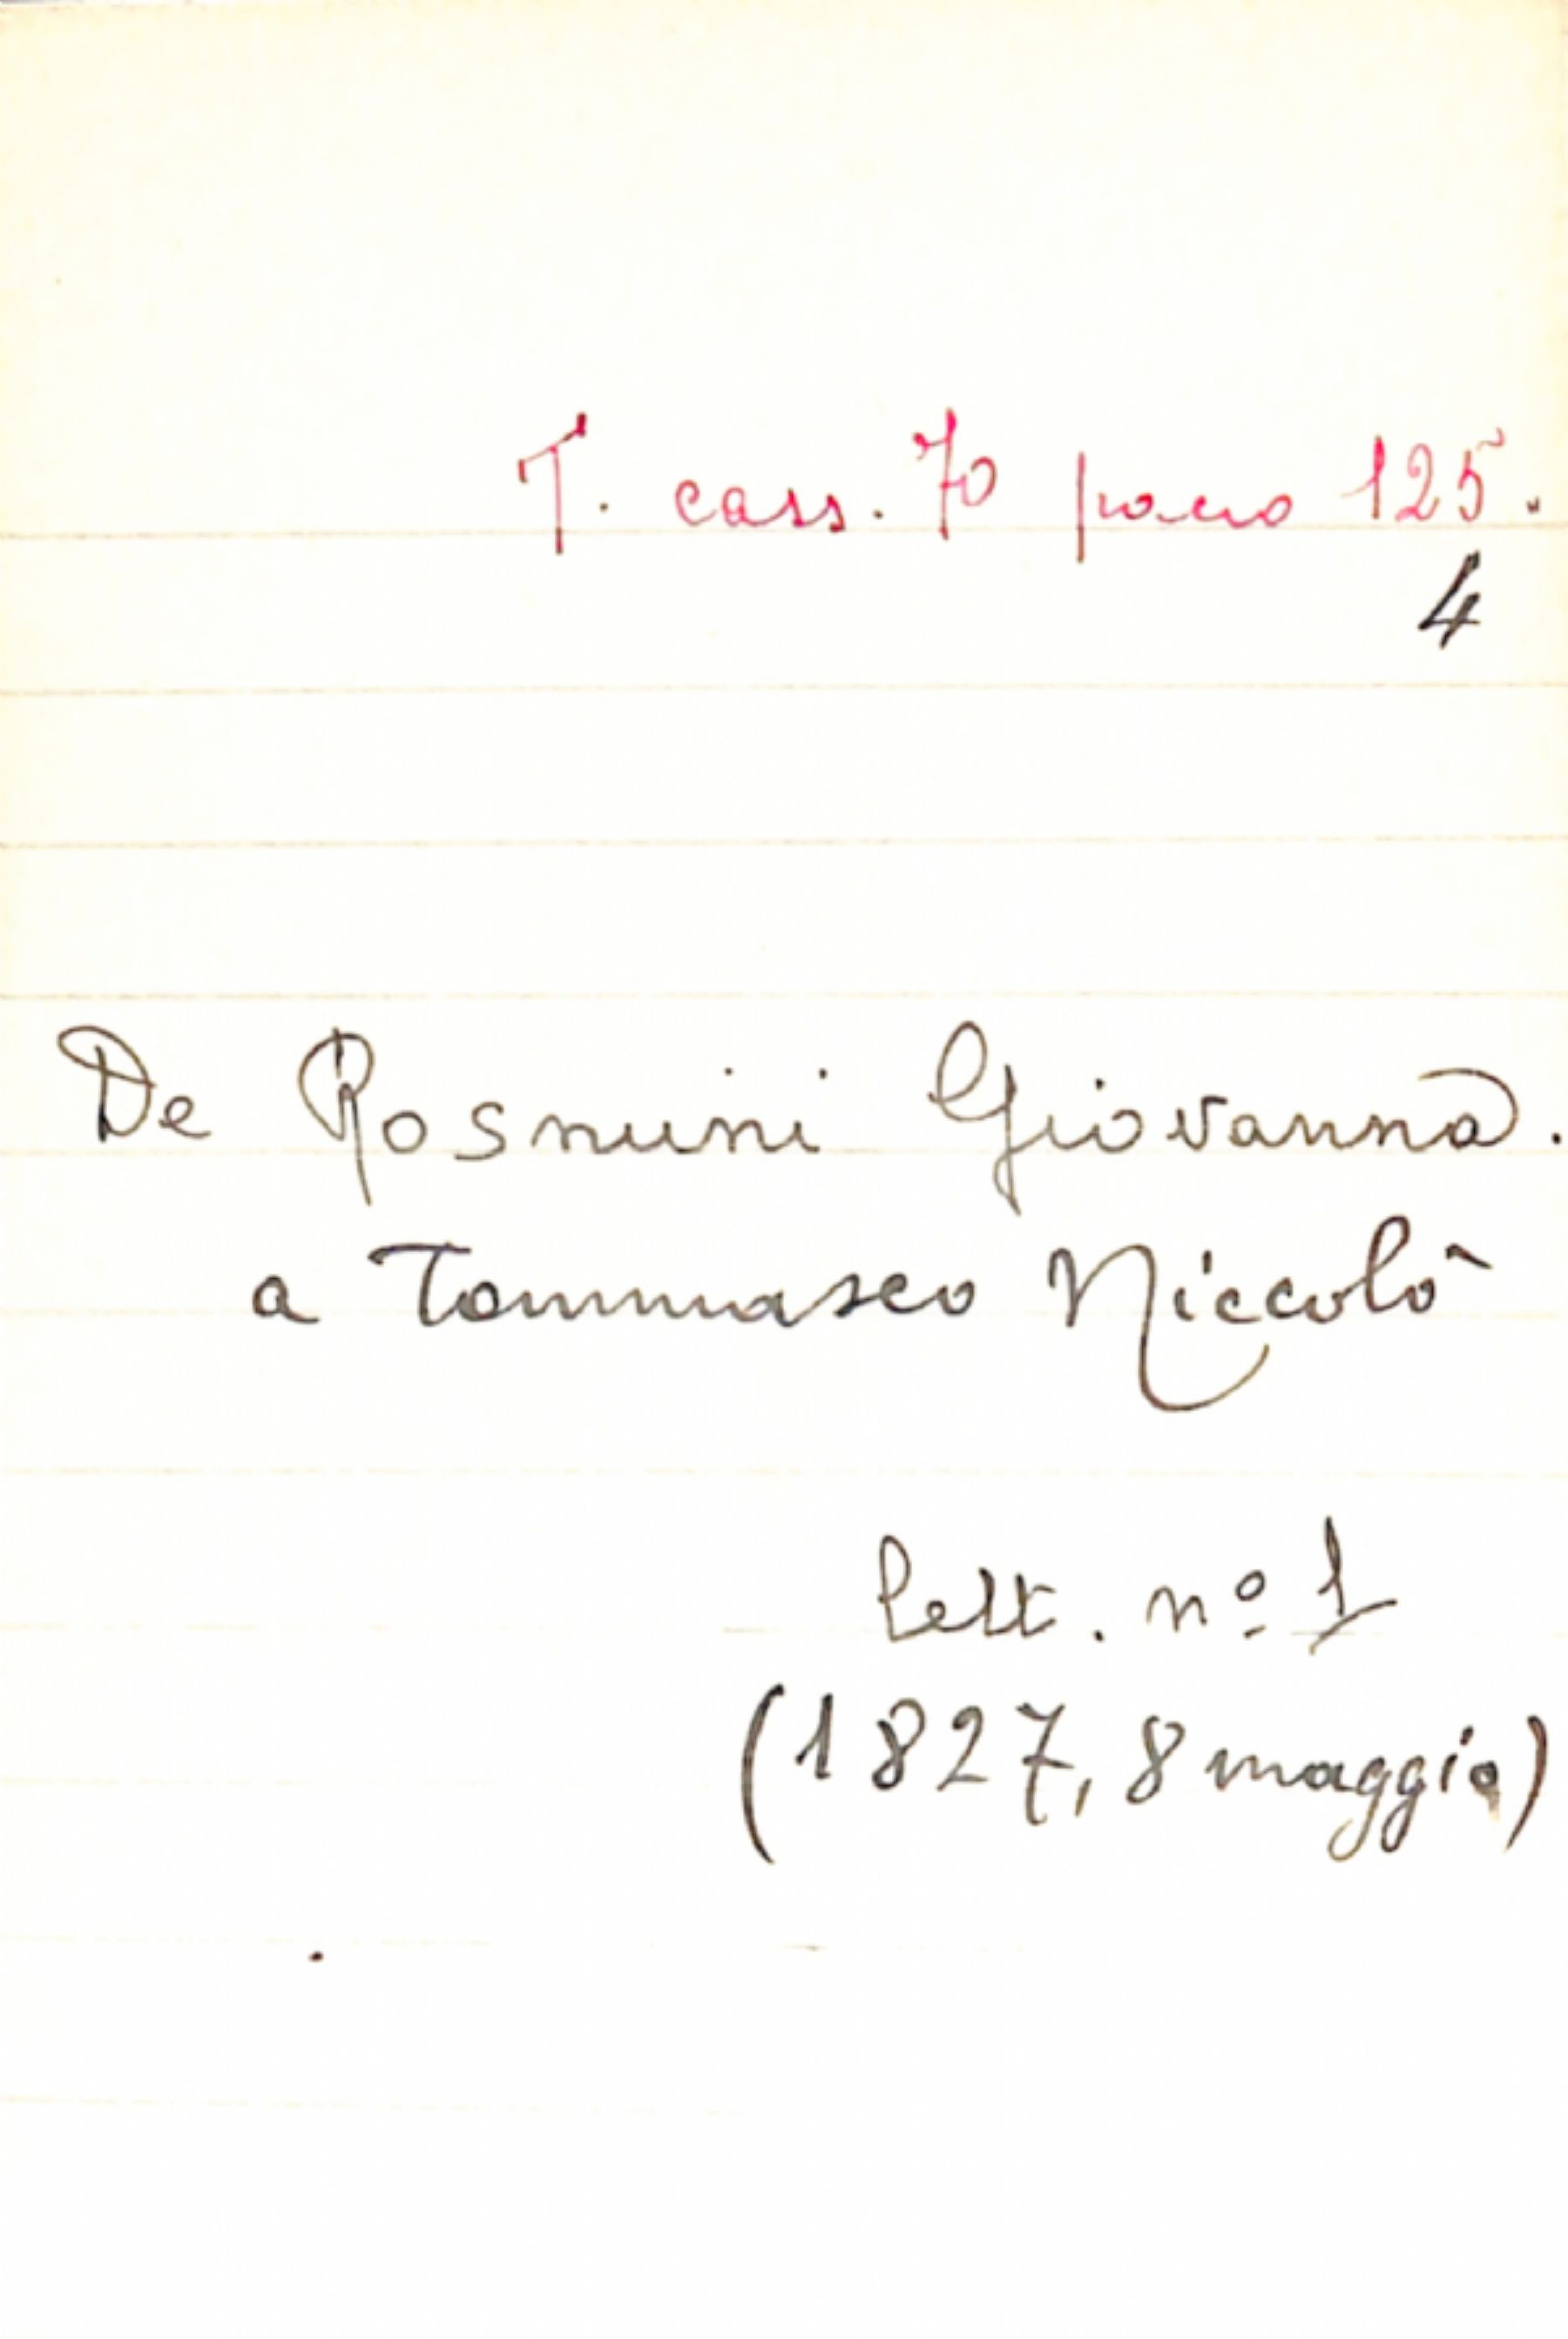 T. cass. 70 pacco 125.
4
De Rosmini Giovanna.
a Tommaseo Niccolò
lett. nº 1
(1827, 8 maggio)